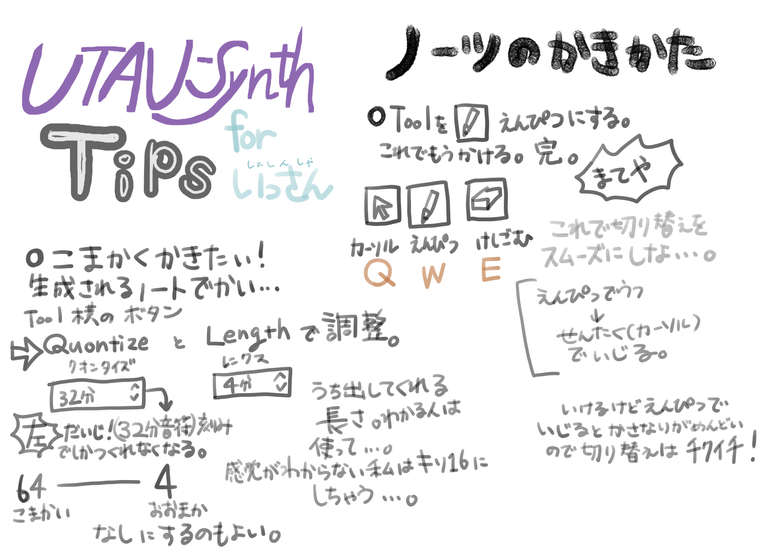 UTAU-Synth
Tips
for
しょしんしゃ
いっさん
○こまかくかきたい!
生成されるノートでかい…
Tool 横の ボタン
⇒Quontize と Length で 調整。
クオンタイズ
レングス
32分
4分
左 だいじ!(32分音符)刻み
でしかつくれなくなる。
64 ― 4
こまかい おおまか
なしにするのもよい。
うち出してくれる
長さ。わかる人は
使って…。
感覚がわからない私はキリ16に
しちゃう…。
ノーツのかきかた
○Toolを えんぴつにする。
これでもうかける。完。
まてや
カーソル えんぴつ けしごむ
Q W E
これで切り替えを
スムーズにしよ…。
えんぴつでうつ
↓
せんたく(カーソル)
でいじる。
いけるけどえんぴつで
いじるとかさなりがめんどい
ので切り替えは チクイチ!